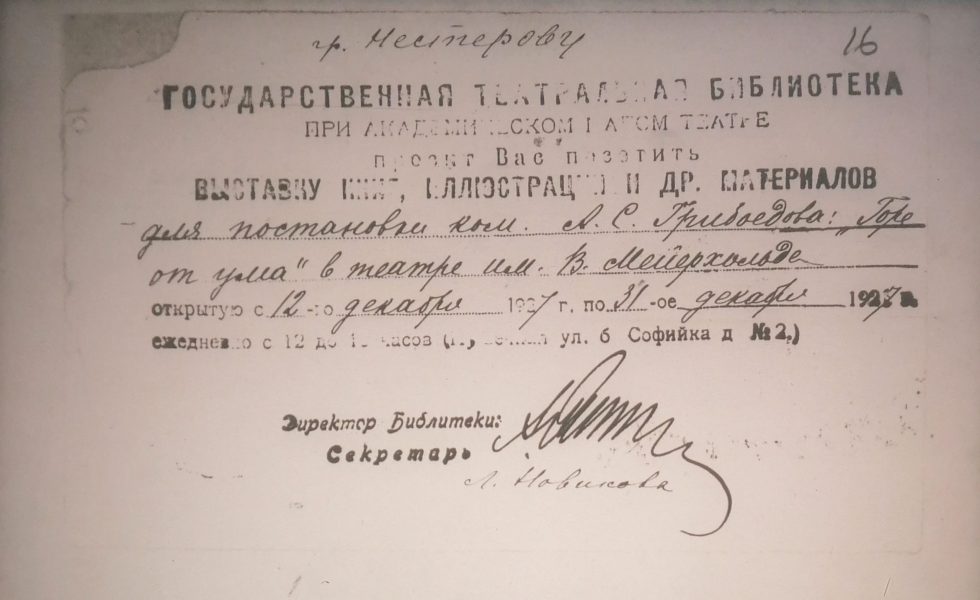 гр. Нестерову 16
ГОСУДАРСТВЕННАЯ ТЕАТРАЛЬНАЯ БИБЛИОТЕКА
ПРИ АКАДЕМИЧЕСКОМ МАЛОМ ТЕАТРЕ
просит Вас посетить
ВЫСТАВКУ КНИГ, ИЛЛЮСТРАЦИЙ И ДР. МАТЕРИАЛОВ
для постановки ком. А. С. Грибоедова: "Горе
от ума" в театре им. В. Мейерхольда
открытую с 12-го декабря 1927 г. по 31-ое декабря 1927 г.
ежедневно с 12 до часов ( ул. б Софийка д № 2.)
Директор Библитеки:
Секретарь
Л. Новикова